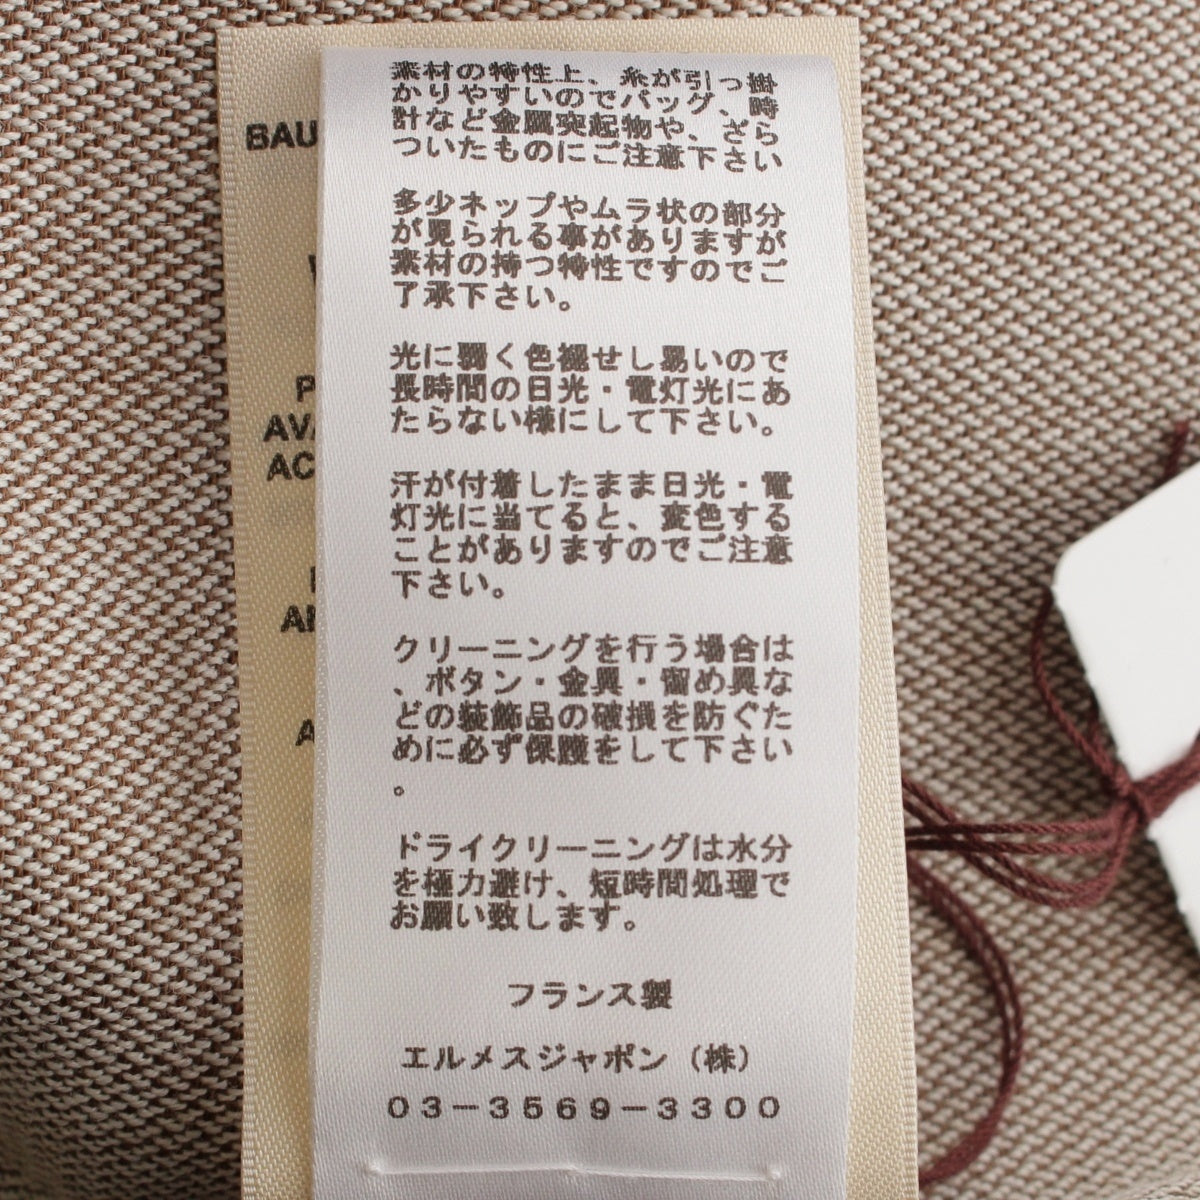 素材の特性上、糸が引っ掛
かりやすいのでバッグ、時
計など金属突起物や、ざら
ついたものにご注意下さい
多少ネップやムラ状の部分
が見られる事がありますが
素材の持つ特性ですのでご
了承下さい。
光に弱く色褪せし易いので
長時間の日光・電灯光にあ
たらない様にして下さい。
汗が付着したまま日光・電
灯光に当てると、変色する
ことがありますのでご注意
下さい。
クリーニングを行う場合は
、ボタン・金具・留め具な
どの装飾品の破損を防ぐた
めに必ず保護をして下さい
。
ドライクリーニングは水分
を極力避け、短時間処理で
お願い致します。
フランス製
エルメスジャポン（株）
０３－３５６９－３３００
BAU
P
AVA
AC
AN
A